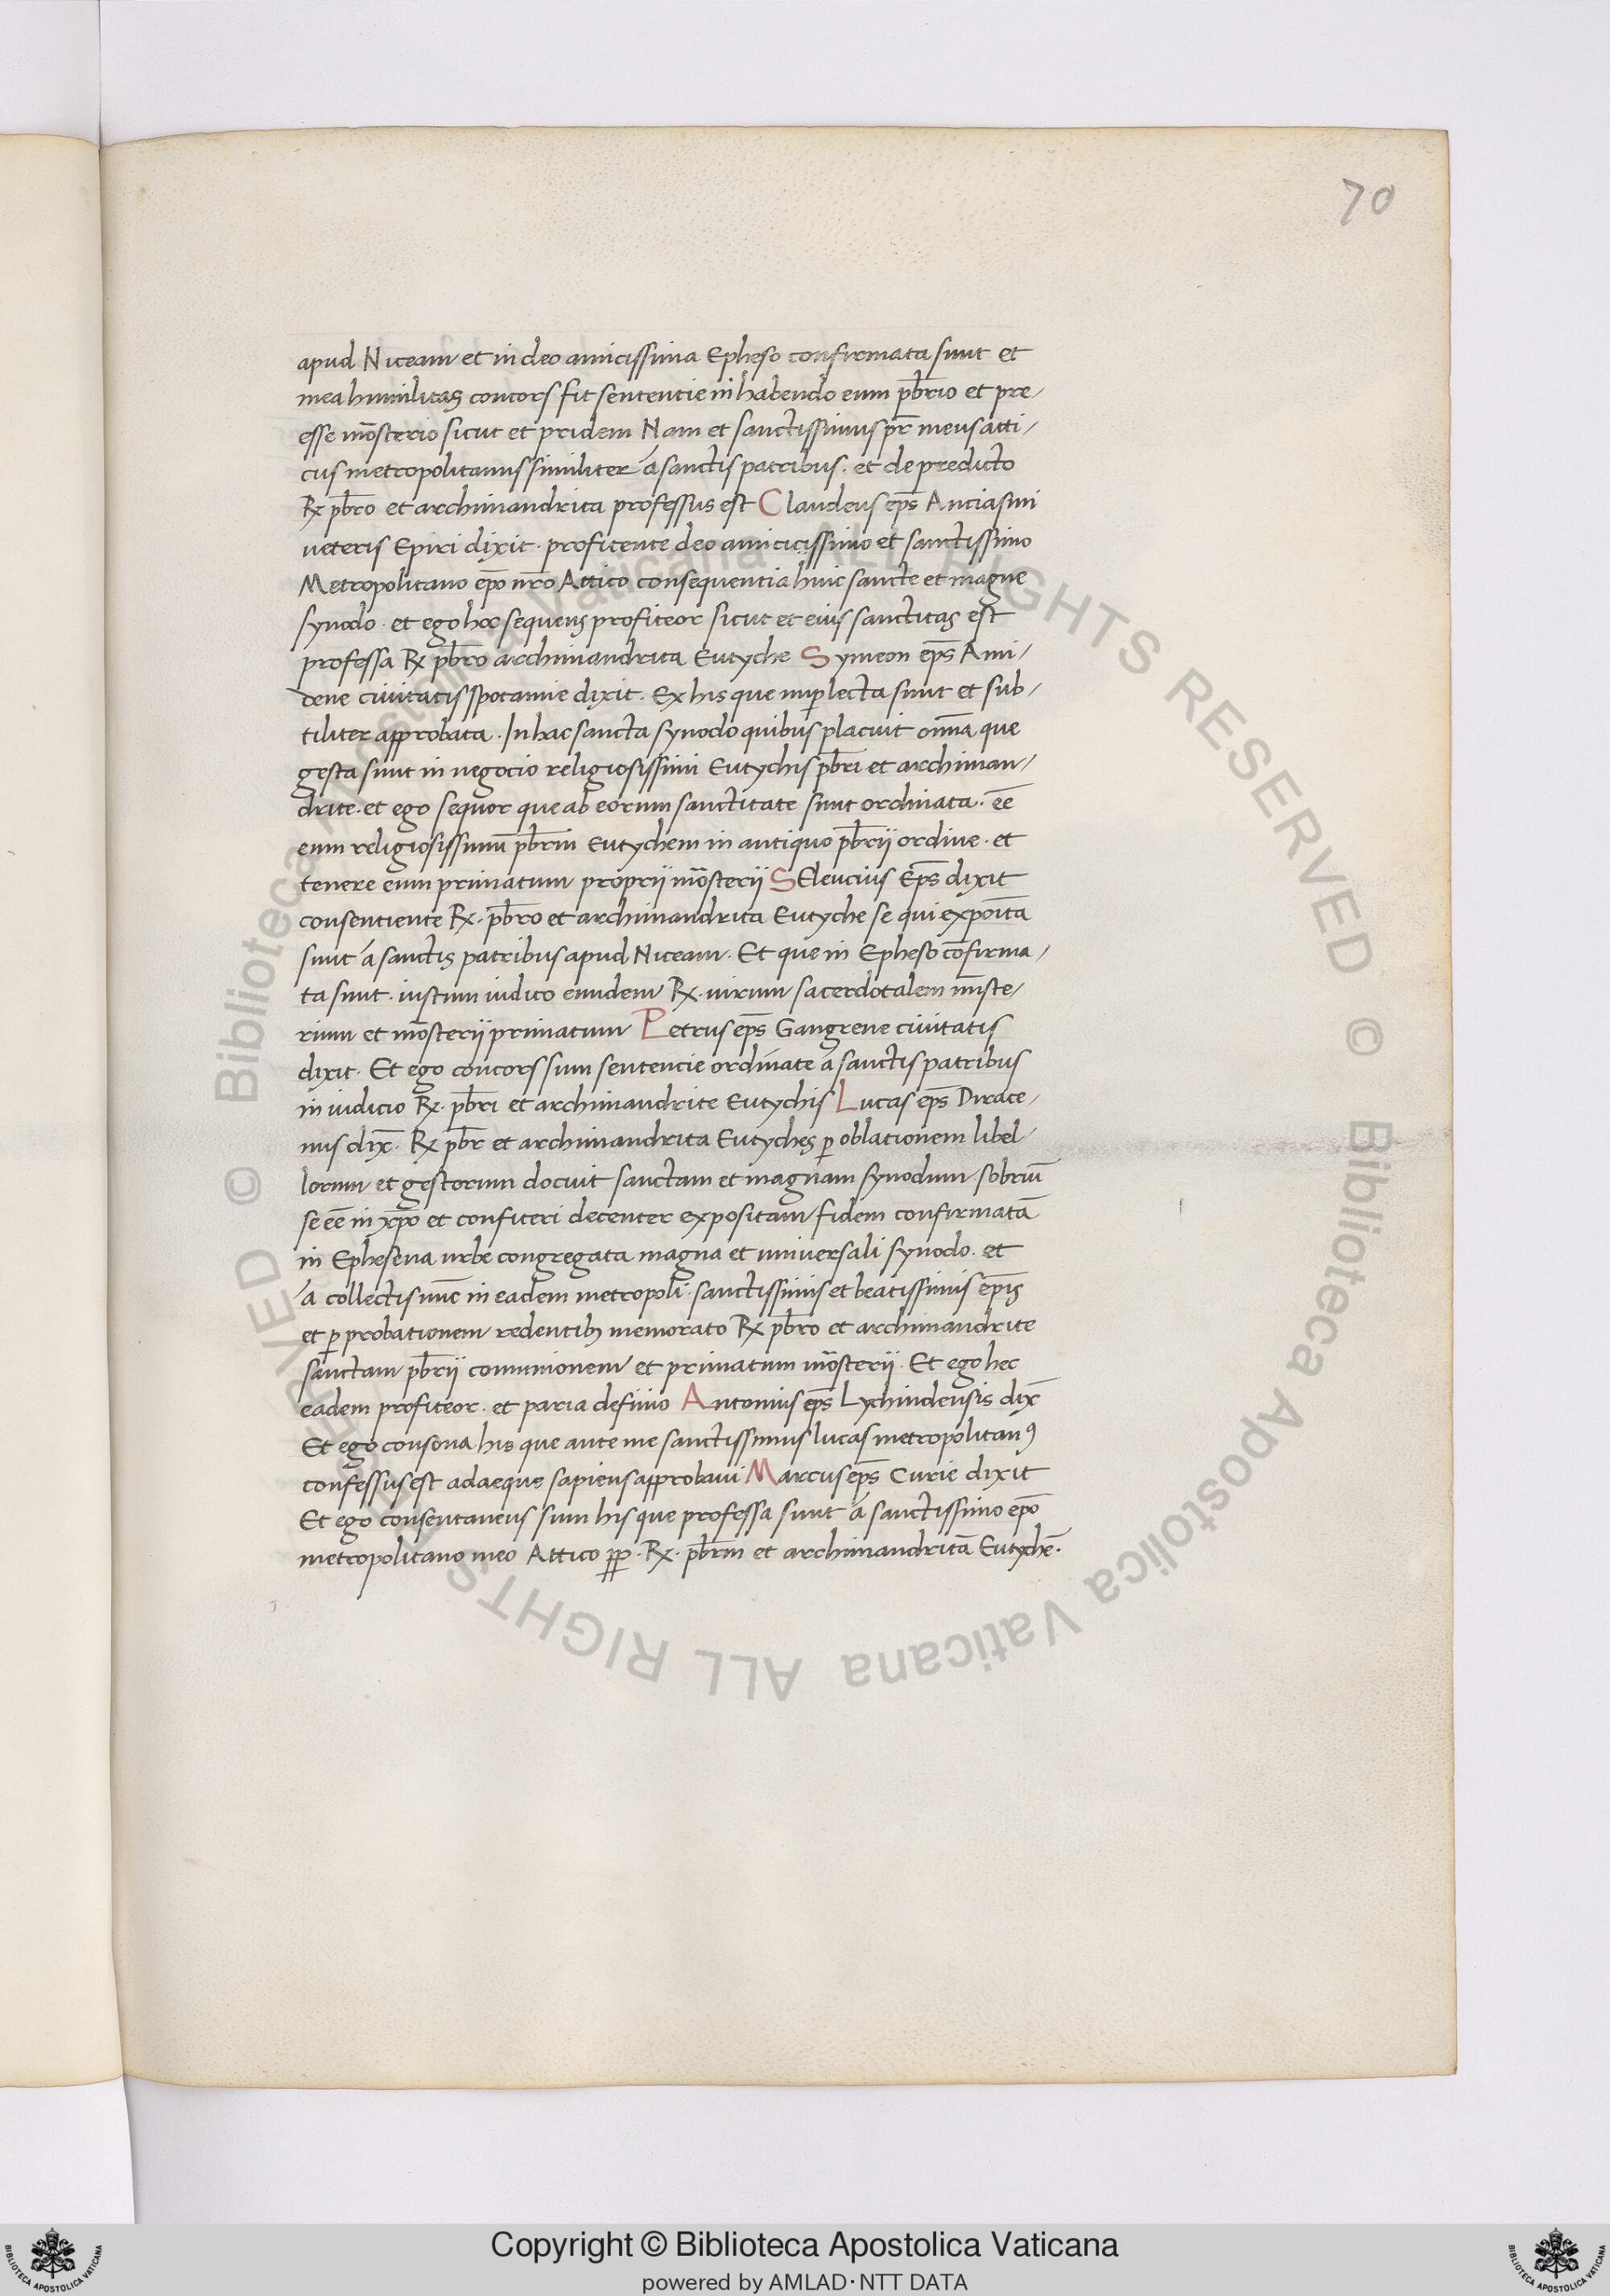 70
apud Niceam et in deo amicissima Epheso confirmata sunt et
mea humilitas concors fit sententie in habendo eum pb̄rio et pre-
esse mōsterio sicut et pridem Nam et sanctissimus pr̄ meus atti-
cus metropolitanus similiter á sanctis patribus. et de predicto
Rx pb̄ro et archimandrita professus est Claudeus ep̄s Anciasmi
ueteris Epiri dixit. profitente deo amicicissimo et sanctissimo
Metropolitano ep̄o nr̄o Attico consequentia huic sancte et magne
synodo. et ego hoc sequens profiteor sicut et eius sanctitas est
professa Rx pb̄ro archimandrita Eutyche Symeon ep̄s Ami-
dene ciuitatis spotamie dixit. Ex his que nuplecta sunt et sub-
tiliter approbata. In hac sancta synodo quibus placuit om̄a que
gesta sunt in negocio religiosissimi Eutychis pb̄ri et archiman-
drite. et ego sequor que ab eorum sanctitate sunt ordinata. eē
eum religiosissimū pb̄rm Eutychem in antiquo pb̄rii ordine. et
tenere eum primatum proprii mōsterii SEleucius Ep̄s dixit
consentiente Rx. pb̄ro et archimandrita Eutyche se qui expoīta
sunt á sanctis patribus apud Niceam. Et que in Epheso cōfirma-
ta sunt. iustum iudico eundem Rx. uirum sacerdotalem mīste-
rium et mōsterii primatum Petrus ep̄s Gangrene ciuitatis
dixit. Et ego concors sum sentencie ordinate á sanctis patribus
in iudicio Rx. pb̄ri et archimandrite Eutychis Lucas ep̄s Dirace-
nus dix̄. Rx pb̄r et archimandrita Eutyches p̱ oblationem libel-
lorum et gestorum docuit sanctam et magnam synodum. sobriū
se eē in xp̄o et confiteri decenter expositam fidem confirmatā
in Ephesena urbe congregata magna et uniuersali synodo. et
á collectis nūc in eadem metropoli. sanctissimis et beatissimis ep̄is
et p̱ probationem redentibꝫ memorato Rx pb̄ro et archimandrite
sanctam pb̄rii comunionem et primatum mōsterii. Et ego hec
eadem profiteor. et paria definio Antonius ep̄s Lychindensis dix̄
Et ego consona his que ante me sanctissimus lucas metropolitanꝰ
confessus est adaeque sapiens approbaui Marcus ep̄s Curie dixit
Et ego consentaneus sum his que professa sunt á sanctissimo ep̄o
metropolitano meo Attico p̱p̱. Rx. pb̄rm et archimandritā Eutychē.
© Biblioteca Apostolica Vaticana ALL RIGHTS RESERVED
© Biblioteca Apostolica Vaticana ALL RIGHTS RESERVED
Copyright © Biblioteca Apostolica Vaticana
powered by AMLAD·NTT DATA
BIBLIOTECA APOSTOLICA VATICANA
BIBLIOTECA APOSTOLICA VATICANA